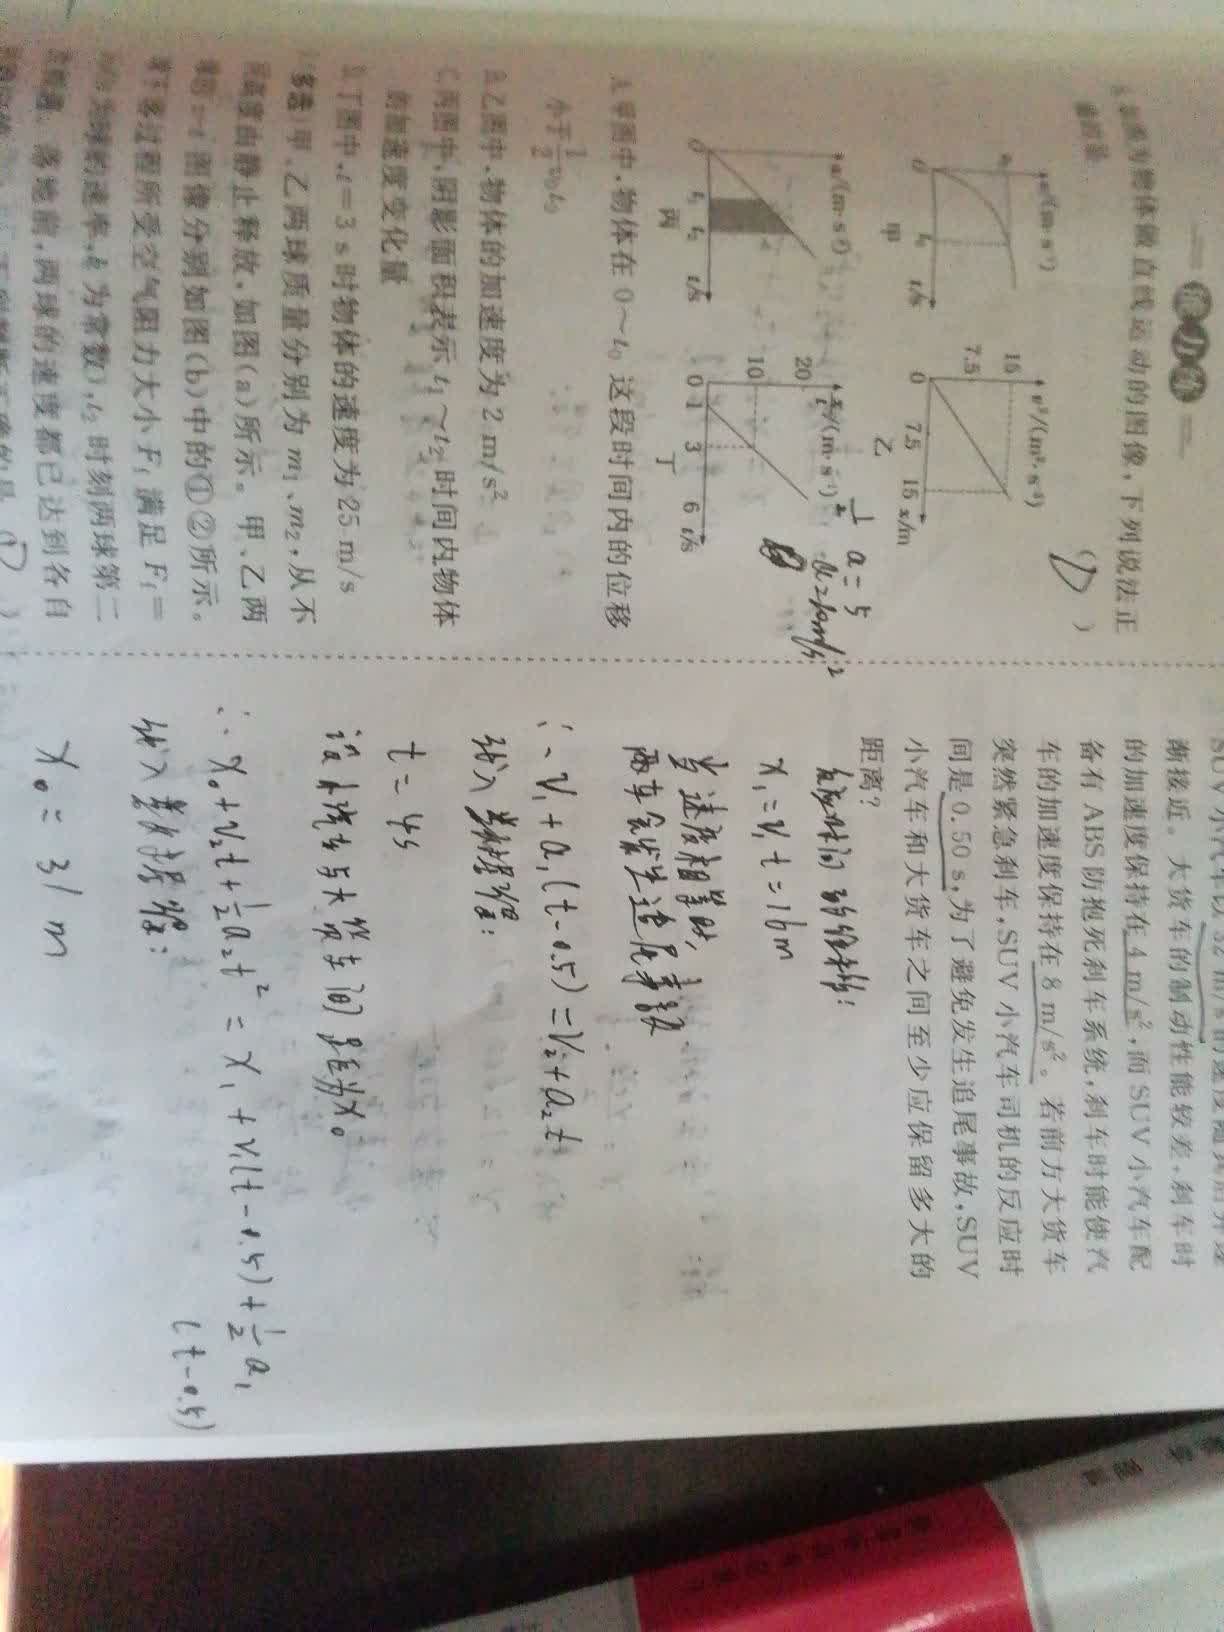 练小题
如图为物体做直线运动的图像，下列说法正
确的是
( D )
v/(m·s⁻¹)
v₀
O
t₀
t/s
甲
v²/(m²·s⁻²)
15
7.5
0
7.5
15
x/m
乙
a/(m·s⁻²)
O
t₁
t₂
t/s
丙
x/t/(m·s⁻¹)
20
10
0
1
3
6
t/s
丁
1/2 a = 5
a = 10m/s²
A.甲图中，物体在 0～t₀ 这段时间内的位移
小于 1/2 v₀t₀
B.乙图中，物体的加速度为 2 m/s²
C.丙图中，阴影面积表示 t₁～t₂ 时间内物体
的加速度变化量
D.丁图中，t=3 s 时物体的速度为 25 m/s
甲、乙两球质量分别为 m₁、m₂，从
由静止释放，如图(a)所示。甲、乙两
v-t 图像分别如图(b)中的①②所示。
过程所受空气阻力大小 Ff 满足 Ff=
为球的速率，k 为常数)，t₂ 时刻两球第二
落地前，两球的速度都已达到各自
SUV 小汽车以 32 m/s 的速度
渐接近。大货车的制动性能较差，刹车时
的加速度保持在 4 m/s²，而 SUV 小汽车配
备有 ABS 防抱死刹车系统，刹车时能使汽
车的加速度保持在 8 m/s²。若前方大货车
突然紧急刹车，SUV 小汽车司机的反应时
间是 0.50 s，为了避免发生追尾事故，SUV
小汽车和大货车之间至少应保留多大的
距离？
反应时间
x₁ = v₁t = 16m
当速度相等时，
两车会发生追尾事故
∴ v₁ + a₁(t - 0.5) = v₂ + a₂t
代入数据得：
t = 4s
设小汽车与大货车间距为x₀
∴ x₀ + v₂t + 1/2 a₂t² = x₁ + v₁(t - 0.5) + 1/2 a₁
(t - 0.5)
代入数据得：
x₀ = 31 m